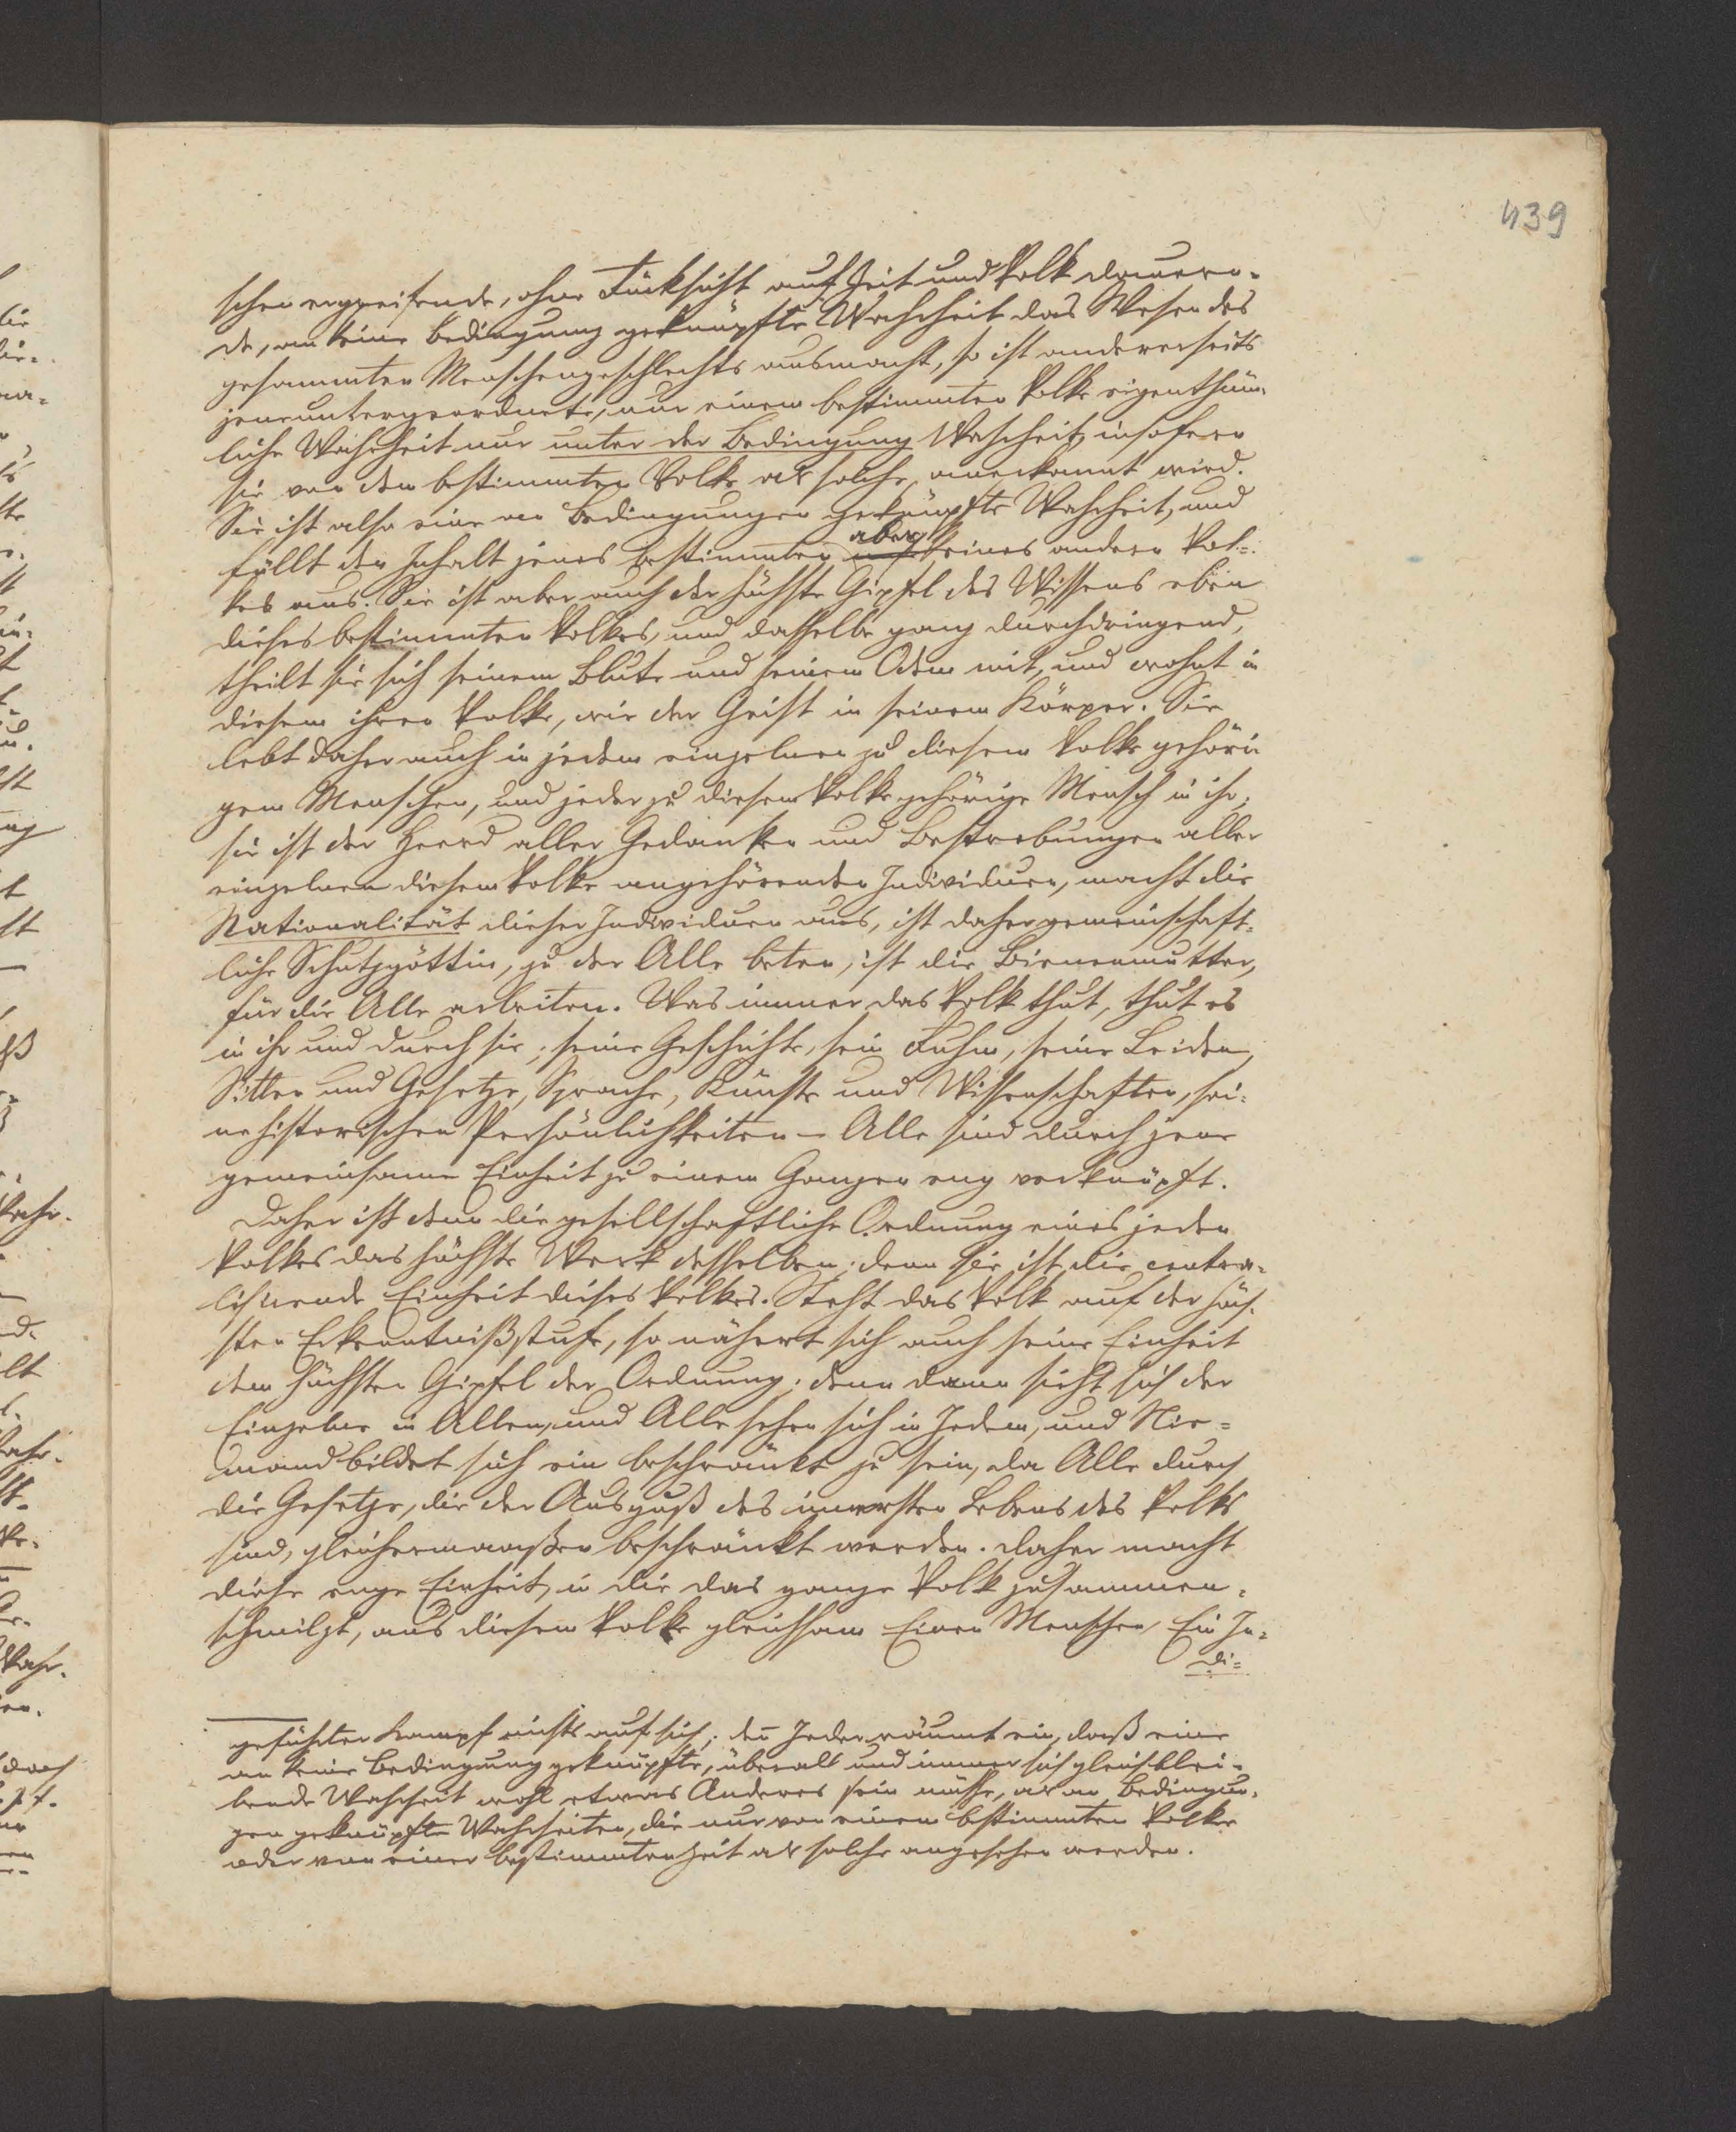 439
schen ergreifende, ohne Rücksicht auf Zeit und Volk dauern-
de, an keine Bedingung geknüpfte Wahrheit das Wesen des
gesammten Menschengeschlechts ausmacht, so ist andererseits
jene untergeordnete, nur einem bestimmten Volke eigenthüm-
liche Wahrheit nur unter der Bedingung Wahrheit, insofern
sie von dem bestimmten Volke als solche anerkannt wird.
Sie ist also eine an Bedingungen geknüpfte Wahrheit, und
füllt den Inhalt jenes bestimmten aber keines andern Vol-
kes aus. Sie ist aber auch der höchste Gipfel des Wissens eben
dieses bestimmten Volkes, und dasselbe ganz durchdringend,
theilt sie sich seinem Blute und seinem Odem mit, und wohnt in
diesem ihren Volke, wie der Geist in seinem Körper. Sie
lebt daher auch in jedem einzelnen zu diesem Volke gehöri
gem Menschen, und jeder zu diesem Volke gehörige Mensch in ihr;
sie ist der Heerd aller Gedanken und Bestrebungen aller
einzelnen diesem Volke angehörenden Individuen, macht die
Nationalität dieser Individuen aus, ist daher gemeinschaft-
liche Schutzgöttin, zu der Alle beten, ist die Bienenmutter,
für die Alle arbeiten. Was immer das Volk thut, thut es
in ihr und durch sie; seine Geschichte, sein Ruhm, seine Leiden,
Sitten und Gesetze, Sprache, Künste und Wissenschaften, sei-
ne historischen Persönlichkeiten – Alle sind durch jene
gemeinsame Einheit zu einem Ganzen eng verknüpft.
Daher ist denn die gesellschaftliche Ordnung eines jeden
Volkes das höchste Werk desselben; denn sie ist die centra-
lisirende Einheit dieses Volkes. Steht das Volk auf der höch-
sten Erkenntnißstufe, so nähert sich auch seine Einheit
dem höchsten Gipfel der Ordnung; denn dann sieht sich der
Einzelne in Allen, und Alle sehen sich in Jedem, und Nie-
mand bildet sich ein beschränkt zu sein, da Alle durch
die Gesetze, die der Ausguß des innersten Lebens des Volks
sind, gleichermaaßen beschränkt werden. Daher macht
diese enge Einheit, in die das ganze Volk zusammen-
schmilzt, aus diesem Volke gleichsam Einen Menschen, Ein In-
di-
geführter Kampf nichts auf sich; den Jeder räumt ein, daß eine
an keine Bedingung geknüpfte, überall und immer sich gleich blei-
bende Wahrheit wohl etwas Anderes sein müsse, als an Bedingun-
gen geknüpfte Wahrheiten, die nur von einem bestimmten Volke
oder von einer bestimmten Zeit als solche angesehen werden.